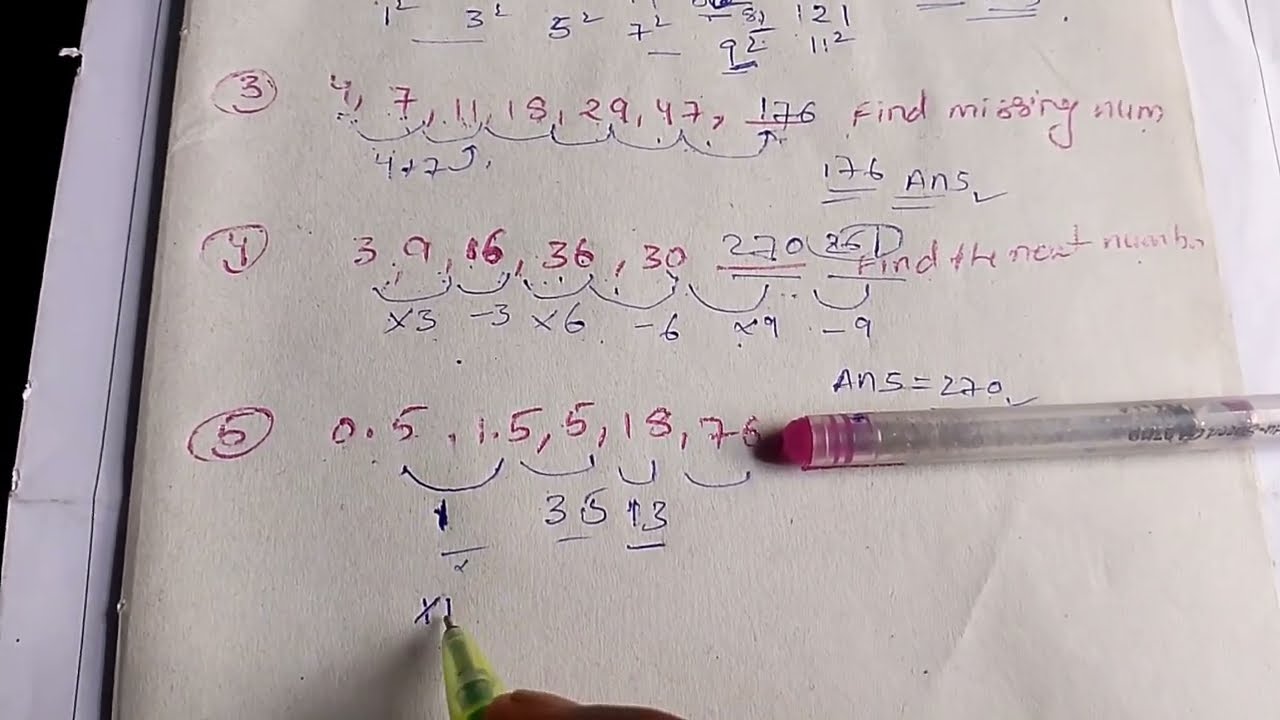 1² 3² 5² 7² 81 121
9² 11²
③ 4, 7, 11, 18, 29, 47, 176 Find missing num
4+7
176 Ans
④ 3, 9, 16, 36, 30 270 261 Find the next number
×3 -3 ×6 -6 ×9 -9
Ans = 270
⑤ 0.5, 1.5, 5, 18, 76
1 35 13
×1